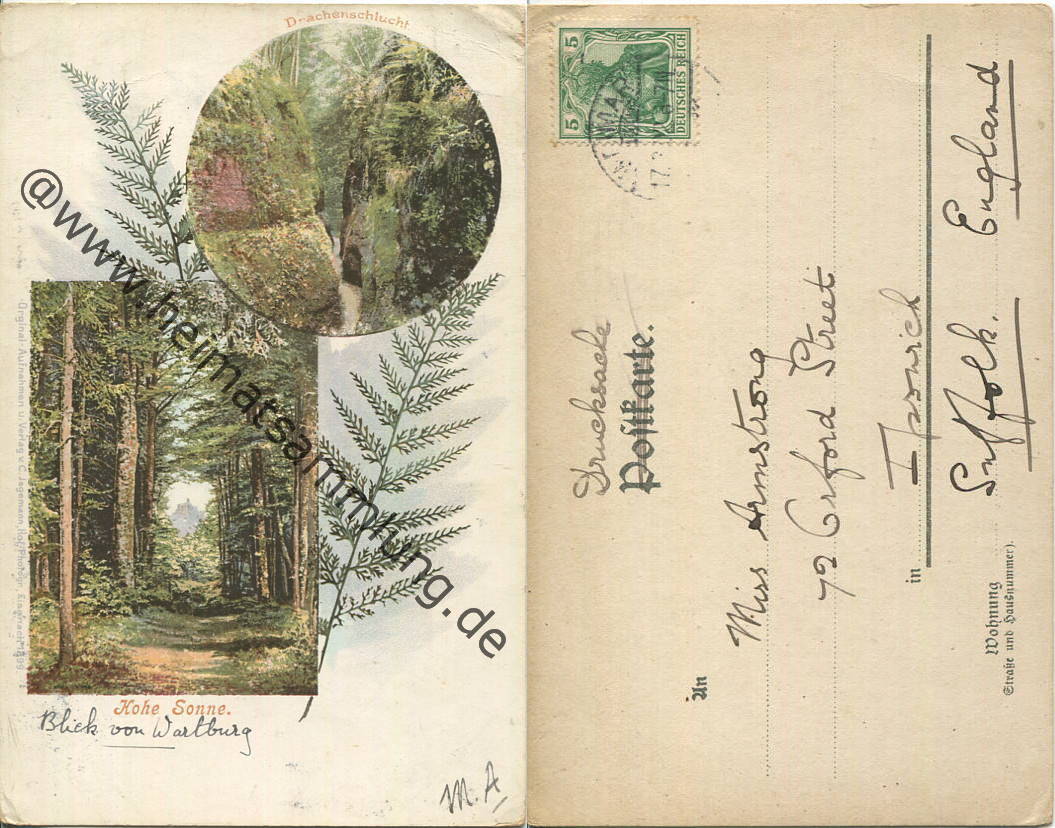 Drachenschlucht
@www.heimatsammlung.de
Original-Aufnahmen u Verlag v. C. Jagemann, Hof-Photogr. Eisenach 1899
Hohe Sonne.
Blick von Wartburg
M. A
5 5
DEUTSCHES REICH
17.
Drucksache
Postkarte.
An
Miss Armstrong
72 Orford Street
in Ipswich
Suffolk. England
Wohnung
(Straße und Hausnummer).